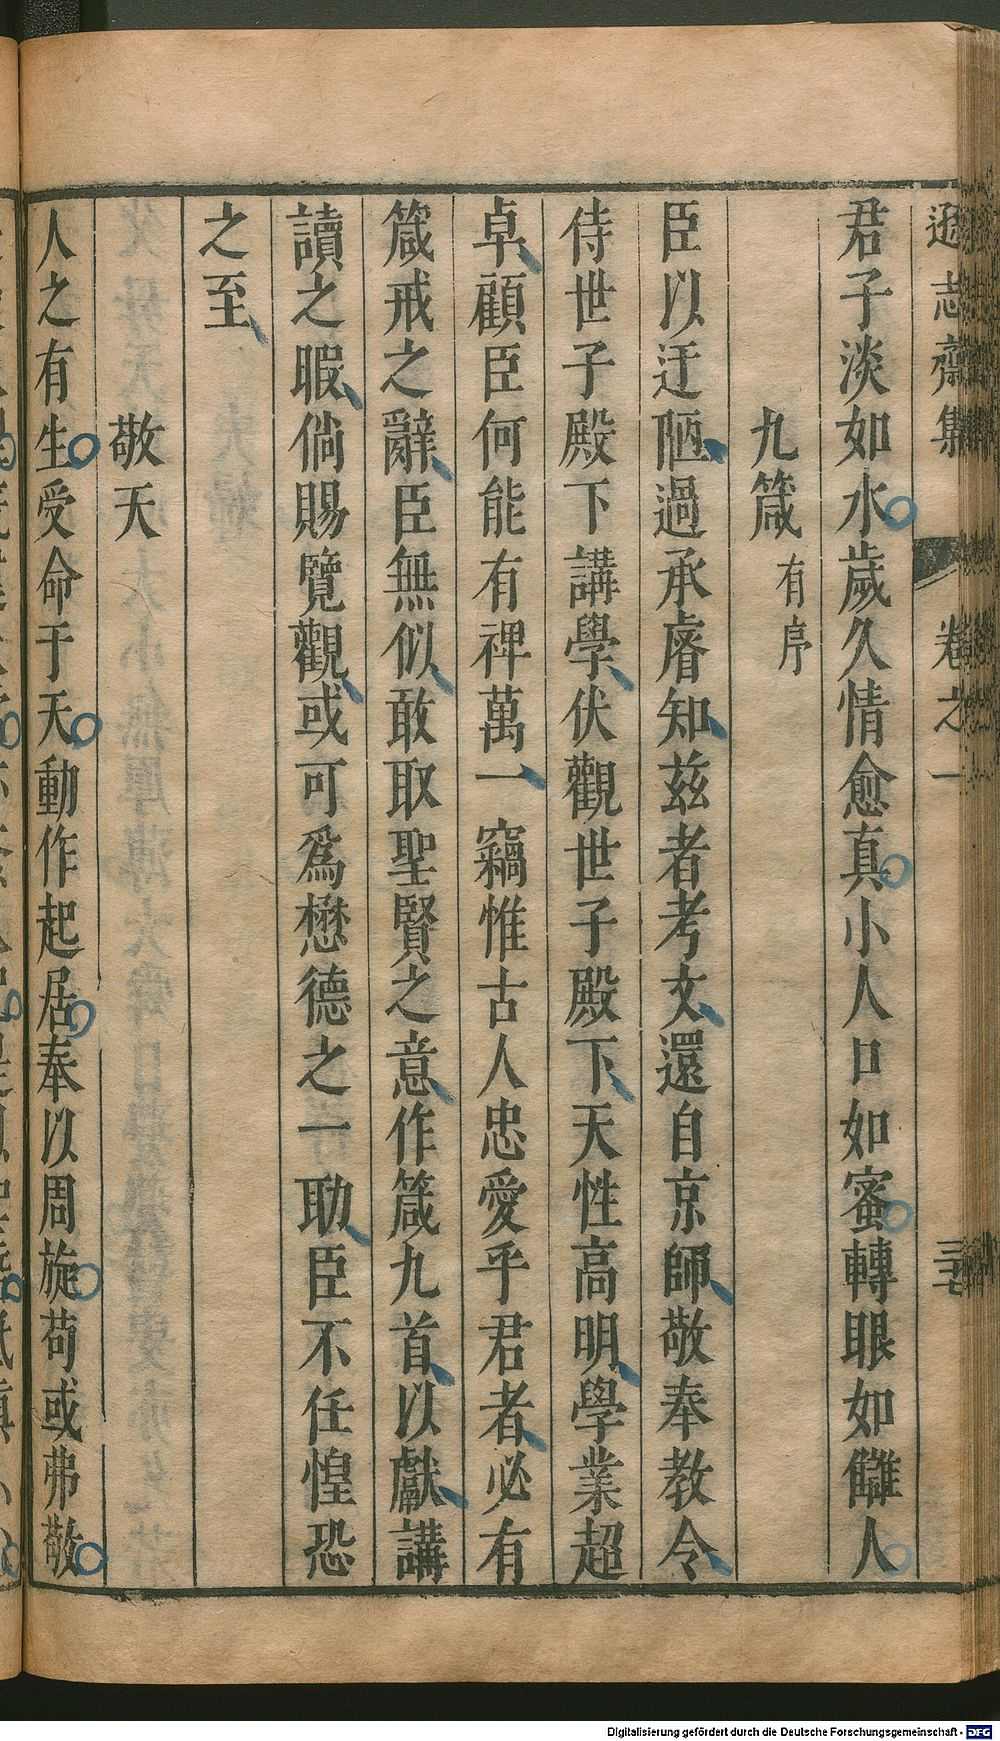 遜志齋集 卷之一 三十七
君子淡如水歲久情愈真小人口如蜜轉眼如讎人
九箴有序
臣以迂陋過承睿知茲者考文還自京師敬奉教令
侍世子殿下講學伏觀世子殿下天性高明學業超
卓顧臣何能有裨萬一竊惟古人忠愛乎君者必有
箴戒之辭臣無似敢取聖賢之意作箴九首以獻講
讀之暇倘賜覽觀或可爲懋德之一助臣不任惶恐
之至
敬天
人之有生受命于天動作起居奉以周旋苟或弗敬
Digitalisierung gefördert durch die Deutsche Forschungsgemeinschaft - DFG